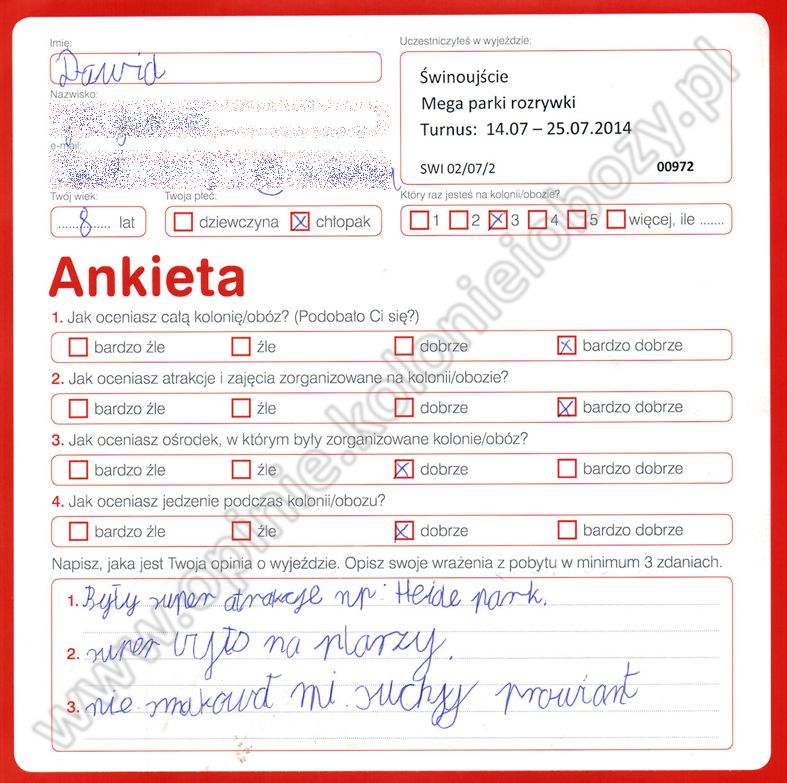 Imię:
Dawid
Uczestniczyłeś w wyjeździe:
Świnoujście
Mega parki rozrywki
Turnus: 14.07 – 25.07.2014
SWI 02/07/2 00972
Nazwisko:
e-mail:
Twój wiek:
......8...... lat
Twoja płeć:
dziewczyna chłopak
Który raz jesteś na kolonii/obozie?
1 2 3 4 5 więcej, ile .......
Ankieta
1. Jak oceniasz całą kolonię/obóz? (Podobało Ci się?)
bardzo źle źle dobrze bardzo dobrze
2. Jak oceniasz atrakcje i zajęcia zorganizowane na kolonii/obozie?
bardzo źle źle dobrze bardzo dobrze
3. Jak oceniasz ośrodek, w którym były zorganizowane kolonie/obóz?
bardzo źle źle dobrze bardzo dobrze
4. Jak oceniasz jedzenie podczas kolonii/obozu?
bardzo źle źle dobrze bardzo dobrze
Napisz, jaka jest Twoja opinia o wyjeździe. Opisz swoje wrażenia z pobytu w minimum 3 zdaniach.
1. Były super atrakcje np: Heide park.
2. super było na plarzy.
3. nie smakował mi suchy prowiant
www.opinie.kolonieiobozy.pl